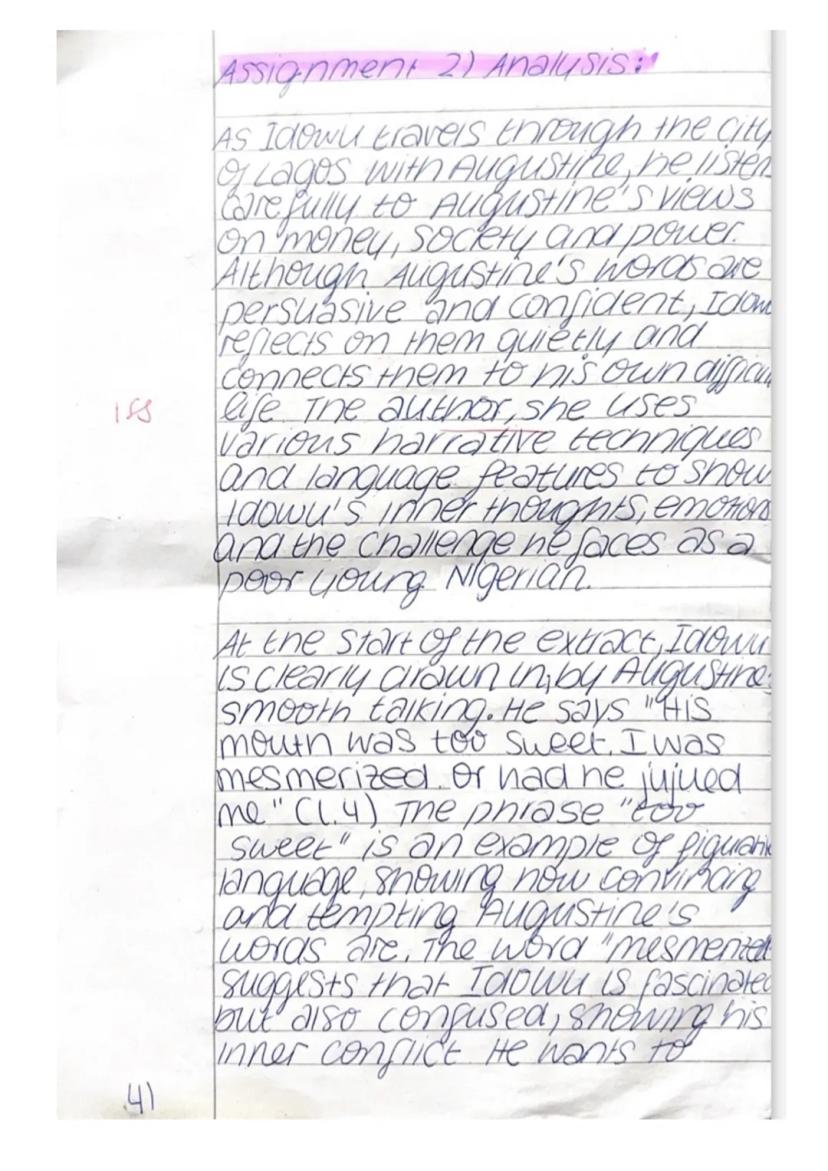 Assignment 2) Analysis:
As Idowu travels through the city
of Lagos with Augustine, he listen
carefully to Augustine's views
on money, society and power.
Although Augustine's words are
persuasive and confident, Idow
reflects on them quietly and
connects them to his own difficu
life. The author, she uses
various narrative techniques
and language features to show
Idowu's inner thoughts, emotions
and the challenge he faces as a
poor young Nigerian.
At the start of the extract, Idowu
is clearly drawn in, by Augustine
smooth talking. He says "His
mouth was too sweet. I was
mesmerized. Or had he jujued
me" (l.4) The phrase "too
sweet" is an example of figurativ
language, showing how convincing
and tempting Augustine's
words are. The word "mesmerized
suggests that Idowu is fascinated
but also confused, showing his
inner conflict. He wants to
4)